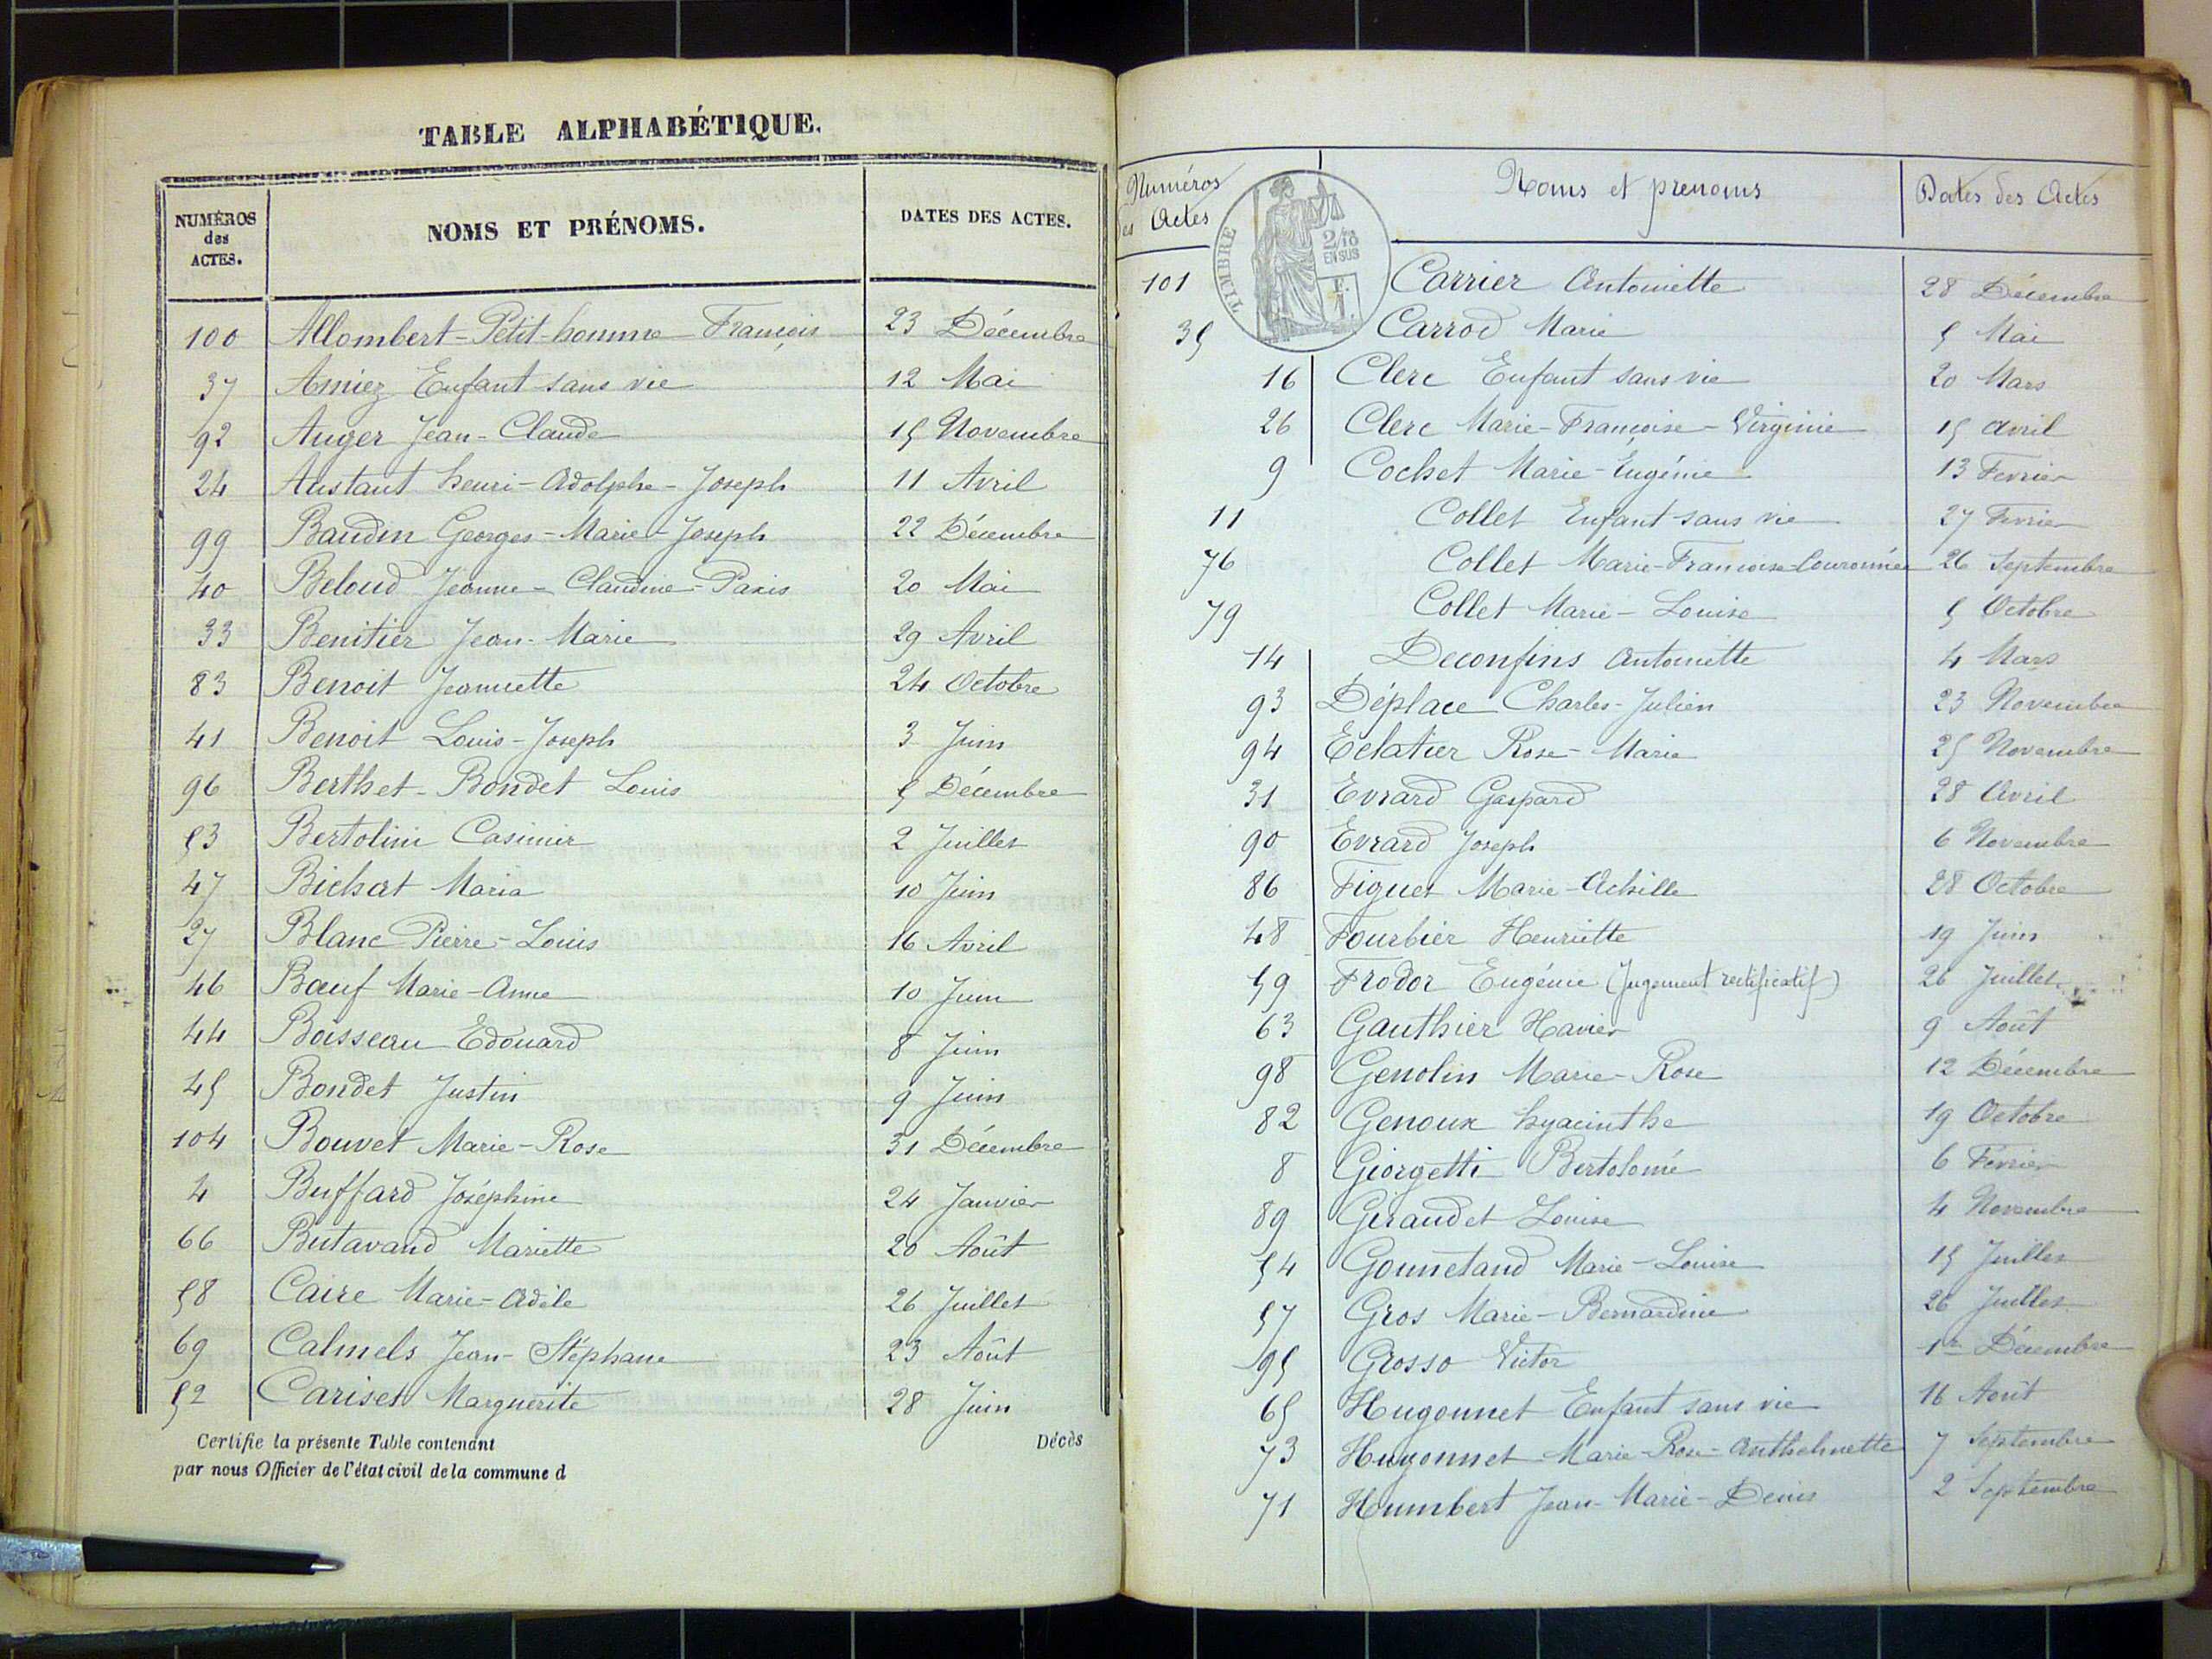 TABLE ALPHABÉTIQUE.
NUMÉROS des ACTES. NOMS ET PRÉNOMS. DATES DES ACTES.
100 Allombert-Petit-homme François 23 Décembre
37 Amiez Enfant sans vie 12 Mai
92 Auger Jean-Claude 15 Novembre
24 Austaut henri-Adolphe-Joseph 11 Avril
99 Baudin Georges-Marie-Joseph 22 Décembre
40 Beloud Jeanne-Claudine-Paris 20 Mai
33 Benitier Jean-Marie 29 Avril
83 Benoit Jeannette 24 Octobre
41 Benoit Louis-Joseph 3 Juin
96 Berthet-Bondet Louis 5 Décembre
53 Bertolini Casimir 2 Juillet
47 Bichat Maria 10 Juin
27 Blanc Pierre-Louis 16 Avril
46 Bœuf Marie-Anne 10 Juin
44 Boisseau Edouard 8 Juin
45 Bondet Justin 9 Juin
104 Bouvet Marie-Rose 31 Décembre
4 Buffard Joséphine 24 Janvier
66 Butavand Mariette 20 Août
58 Caire Marie-Adèle 26 Juillet
69 Calmels Jean-Stéphane 23 Août
52 Cariset Marguerite 28 Juin
Certifie la présente Table contenant Décès
par nous Officier de l'état civil de la commune d
Numéros des Actes Noms et prenoms Dates des Actes
TIMBRE 2/10 EN SUS
101 Carrier Antoinette 28 Décembre
35 Carrod Marie 5 Mai
16 Clerc Enfant sans vie 20 Mars
26 Clerc Marie-Françoise-Virginie 15 Avril
9 Cochet Marie-Eugénie 13 Fevrier
11 Collet Enfant sans vie 27 Fevrier
76 Collet Marie-Francoise-Couronnée 26 Septembre
79 Collet Marie-Louise 5 Octobre
14 Deconfins Antoinette 4 Mars
93 Déplace Charles-Julien 23 Novembre
94 Eclatier Rose-Marie 25 Novembre
31 Evrard Gaspard 28 Avril
90 Evrard Joseph 6 Novembre
86 Figuet Marie-Achille 28 Octobre
48 Fourbier Henriette 19 Juin
59 Frodor Eugénie (Jugement rectificatif) 26 Juillet
63 Gauthier Xavier 9 Août
98 Genolin Marie-Rose 12 Décembre
82 Genoux hyacinthe 19 Octobre
8 Giorgetti Bertolomé 6 Février
89 Giraudet Louise 4 Novembre
54 Gonnetand Marie-Louise 15 Juillet
57 Gros Marie-Bernardine 26 Juillet
95 Grosso Victor 1er Décembre
65 Hugonnet Enfant sans vie 16 Août
73 Hugonnet Marie-Rose-Anthelmette 7 Septembre
71 Humbert Jean-Marie-Denis 2 Septembre